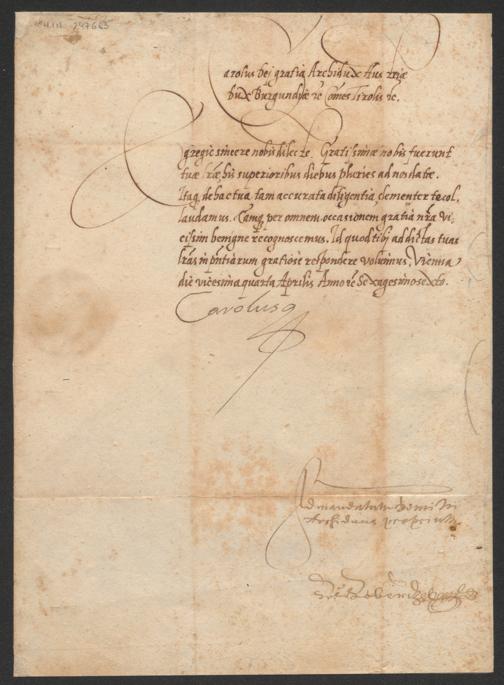 Carolus Dei gratia Archidux Austriæ
Dux Burgundiæ &c Comes Tirolis &c.
Egregie sincere nobis dilecte. Gratissimæ nobis fuerunt
tuæ lræ his superioribus diebus pluries ad nos datæ.
Itaq. de hac tua tam accurata diligentia, clementer te col,
laudamus. Eamq. per omnem occasionem gratia nra vi,
cissim benigne recognoscemus. Id quod tibi ad dictas tuas
lras in pntiarum gratiose respondere voluimus. Vienna
die vicesima quarta Aprilis Anno &c Sexagesimosexto.
Carolus
Ad mandatum Domini
Archiducis proprium